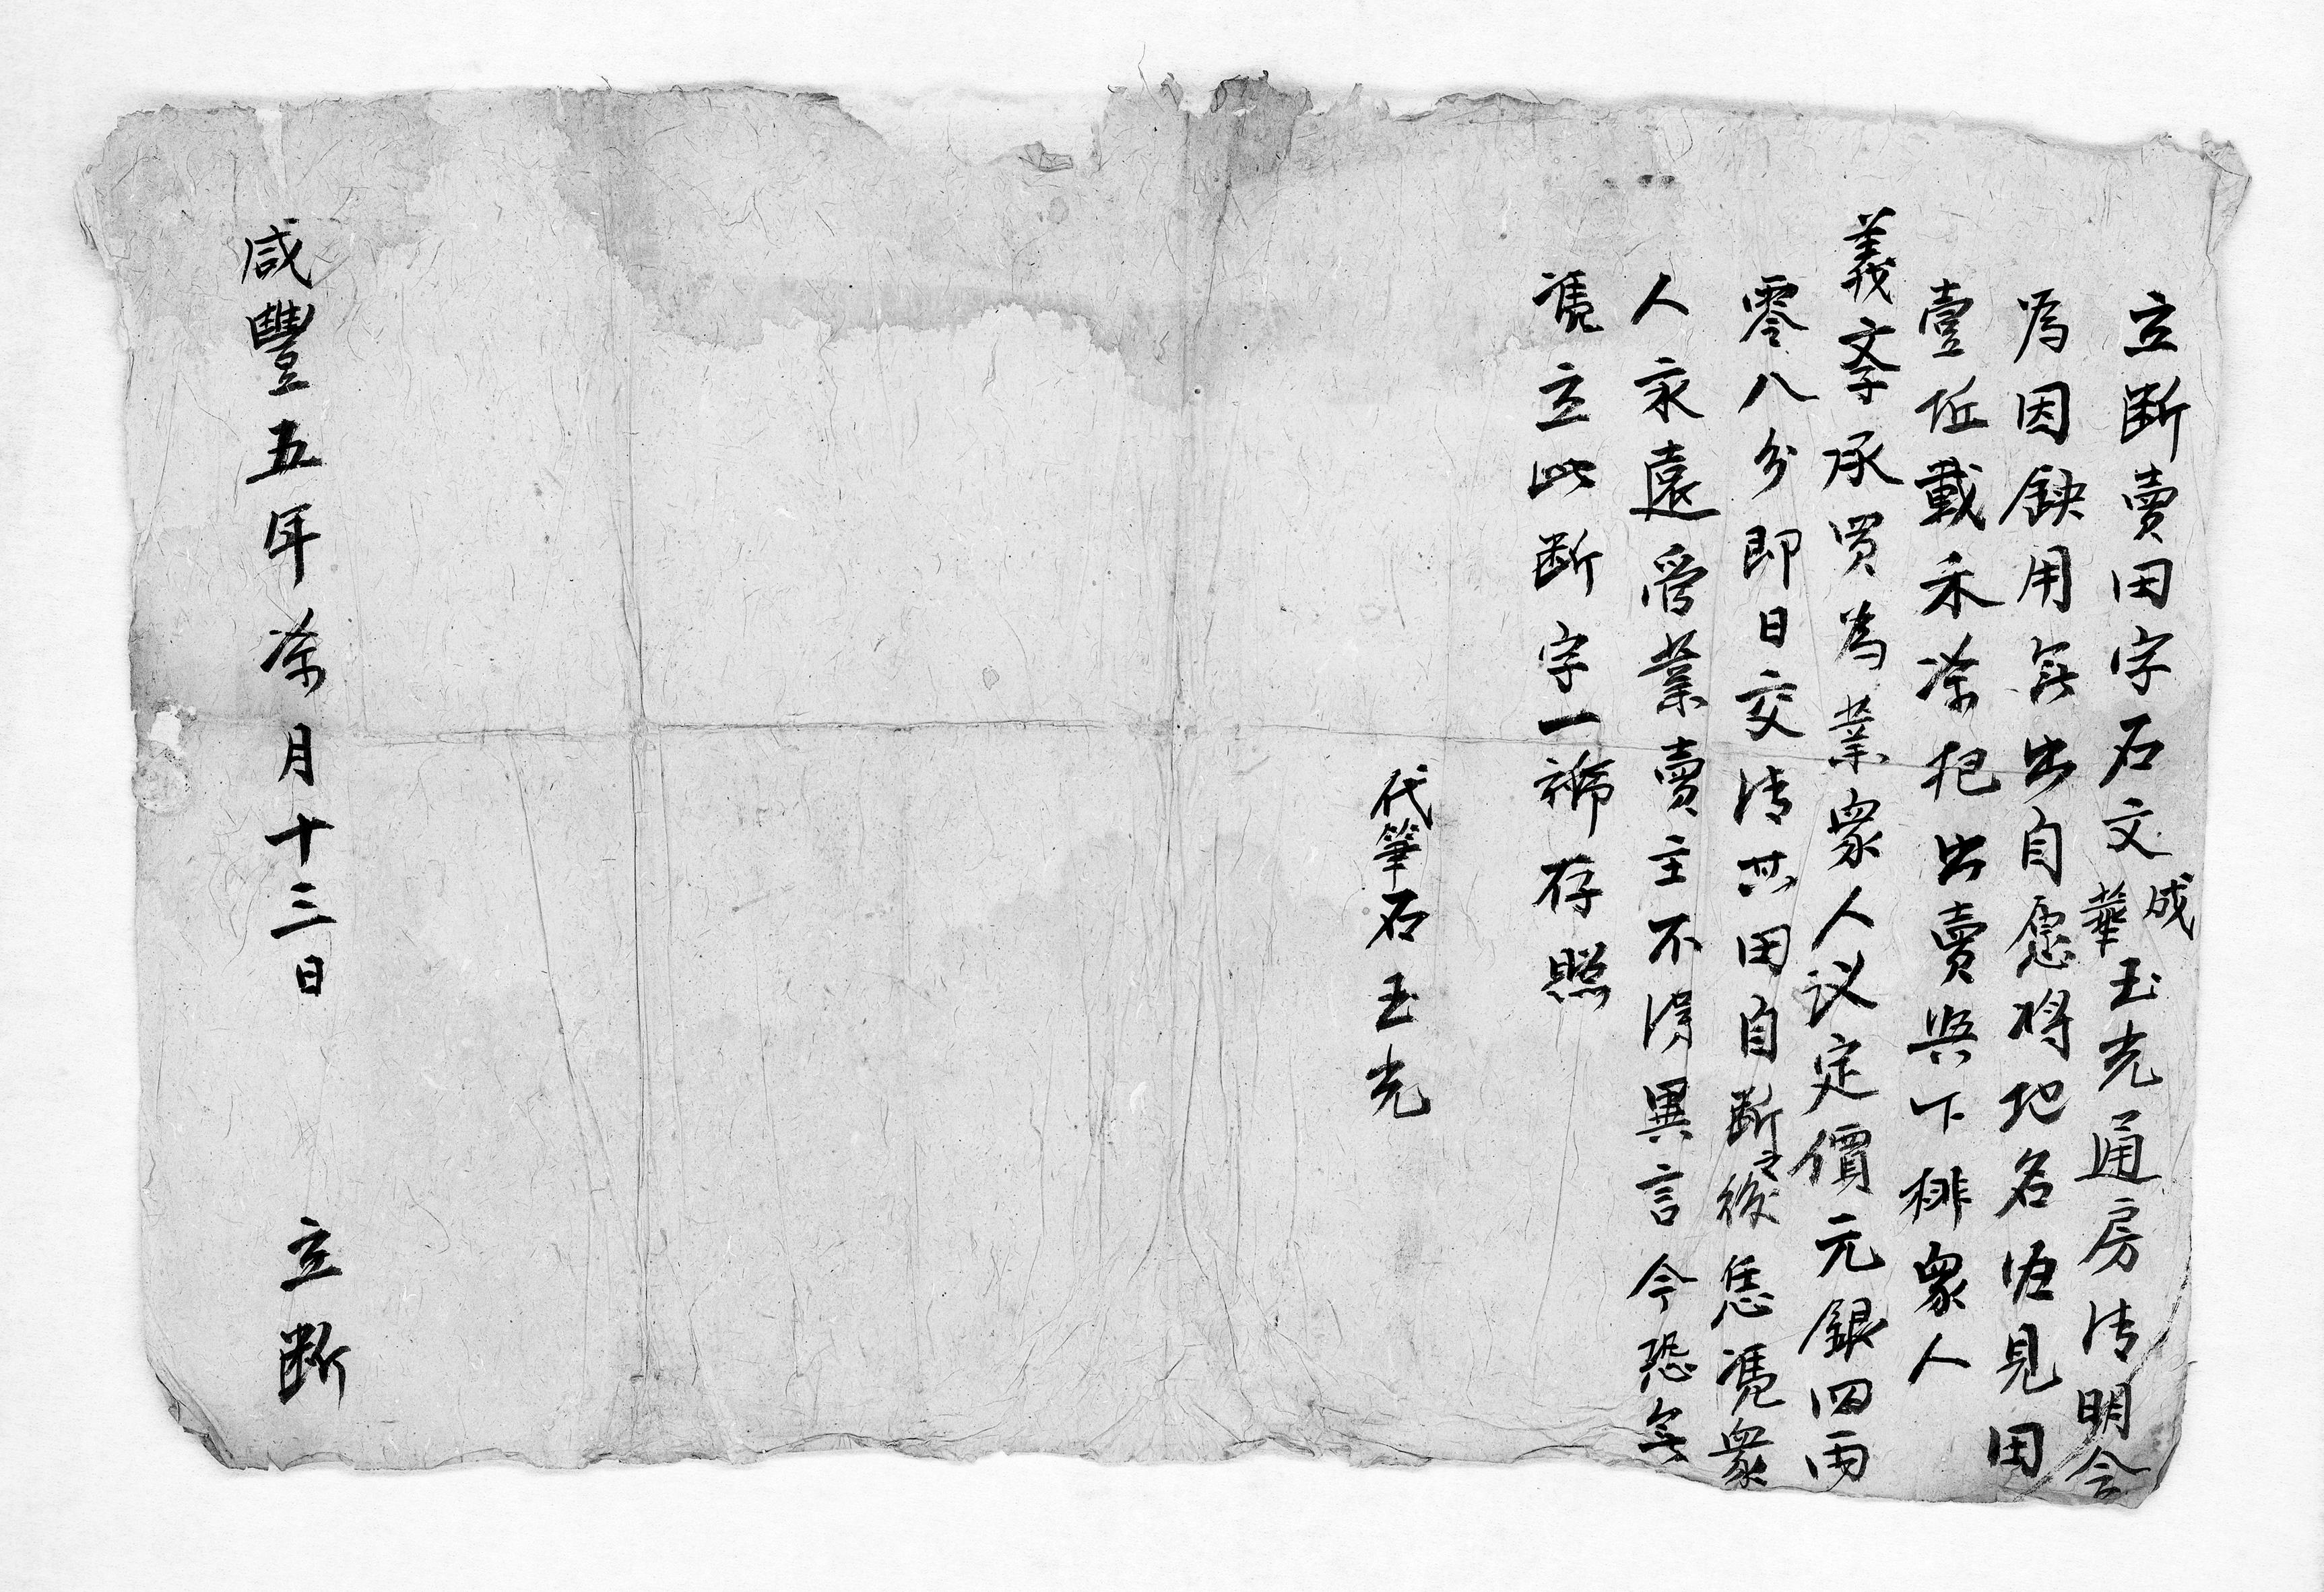 立断賣田字石文成華玉光通房清明会
為因缺用無出自愿將地名洭見田
壹坵載禾凃把出賣與下排衆人
義文孝承買為業衆人议定價元銀四両
零八分即日交清其田自断之後恁凴衆
人永遠管業賣主不得異言今恐無
凴立此断字一㡧存照
代筆石玉光
咸豐五年凃月十三日 立断